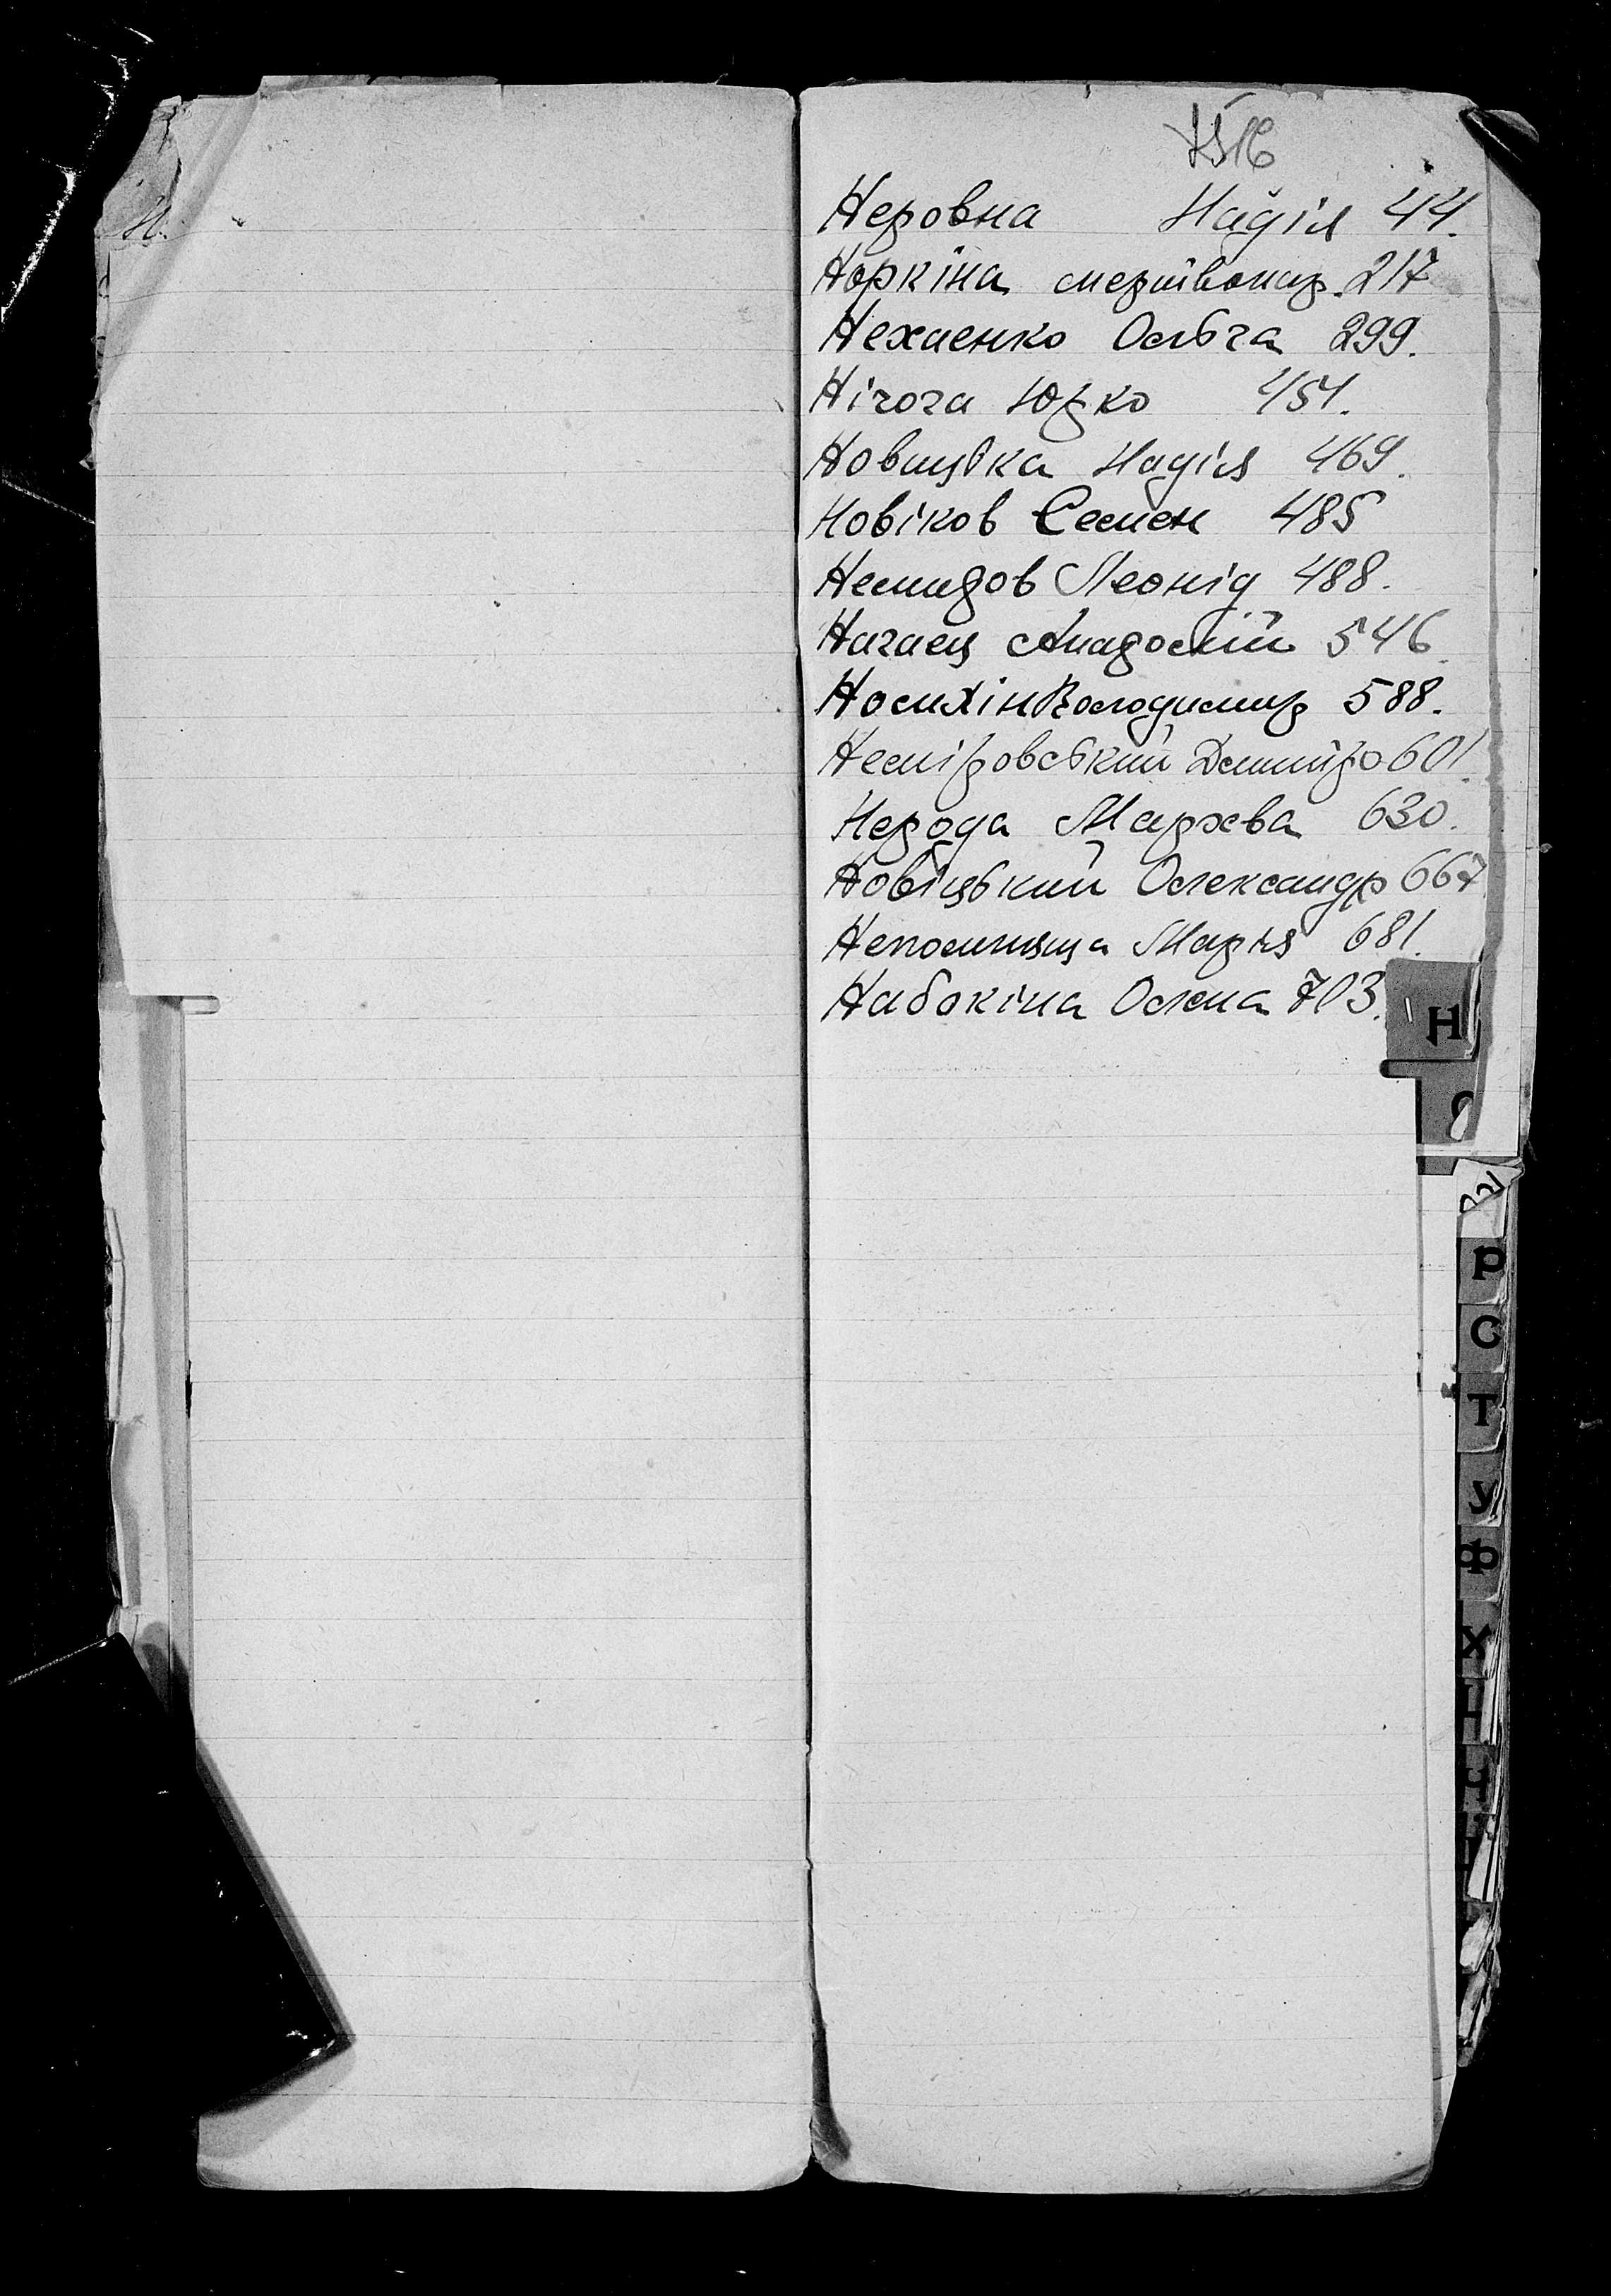 Н.
Неровна Надія 44.
Норкіна мертвонар. 217
Нехаенко Ольга 299.
Нічога Юрко 451.
Новицька Надія 469.
Новіков Семен 485
Немидов Леонід 488.
Нагаец 546.
Носихін Володимир 588.
Неміровський Дмитро 601.
Нерода Мархва 630.
Новіцький Олександр 667
Марія 681.
Набокіна Олена 703.
Н
О
Р
С
Т
У
Ф
Х